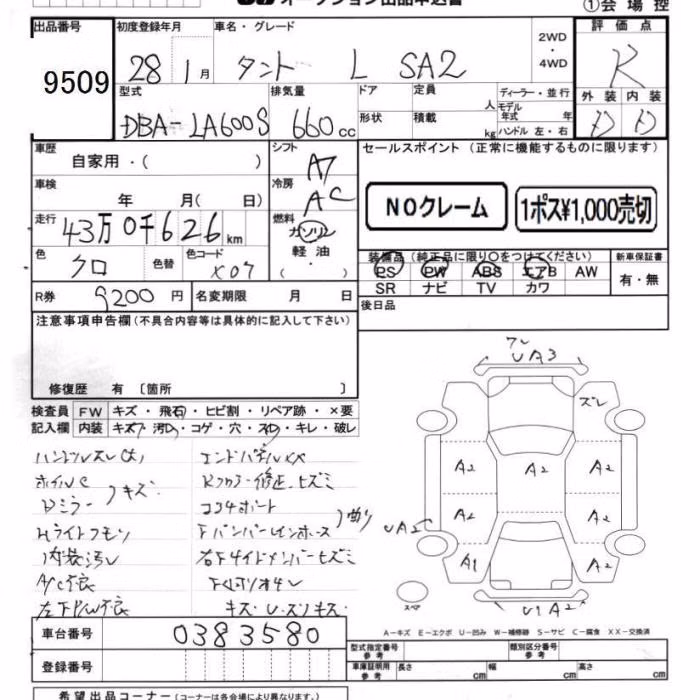 オークション出品申込書
①会場控
出品番号 初度登録年月 車名・グレード 評価点
9509 28 1月 タント L SA2 2WD・4WD R
型式 排気量 ドア 定員 人 ディーラー・並行 外装 内装
DBA-LA600S 660cc 形状 積載 kg モデル年式 年 ハンドル 左・右 D D
車歴 自家用・( ) シフト AT セールスポイント (正常に機能するものに限ります)
車検 年 月( 日) 冷房 AC NOクレーム 1ポス¥1,000売切
走行 43万0千626km 燃料 ガソリン
色 クロ 色替 色コード X07 軽油・( )
装備品(純正品に限り○をつけてください) 新車保証書
PS PW ABS エアB AW 有・無
SR ナビ TV カワ
R券 9200円 名変期限 月 日 後日品
注意事項申告欄(不具合内容等は具体的に記入して下さい)
修復歴 有〔箇所 〕
検査員 FW キズ・飛石・ヒビ割・リペア跡・×要
記入欄 内装 キズ・汚・コゲ・穴・スレ・キレ・破レ
ハンドルスレ(大)
ホイルC
Dミラー キズ
Hライトクモリ
内装汚レ
A/C不良
左下P/W不良
エンドパネルXX
Rフロアー修正、ヒズミ
コアサポート
FバンパーレインホースU
曲り
右Fサイドメンバーヒズミ
キズ・U・スリキズ・
ワレ
UA3
ズレ
A2 A2 A2
A2 A2
UA2
A1 A2
U1A2
スペア
A-キズ E-エクボ U-凹み W-補修跡 S-サビ C-腐食 XX-交換済
車台番号 0383580 型式指定番号 参考 類別区分番号 参考
登録番号 車庫証明用 参考 長さ cm 幅 cm 高さ cm
希望出品コーナー(コーナーは各会場により異なります。)